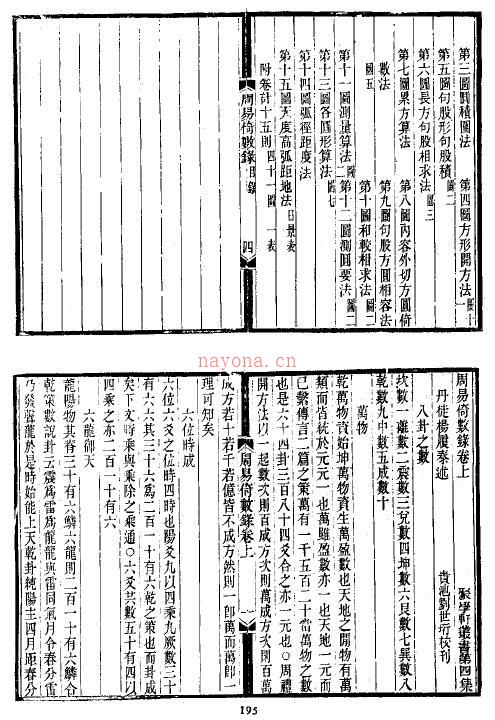 第三圖圓積圖法
第四圖方形開方法一圖
第五圖句股形句股積圖二
第六圖長方句股相求法圖三
第七圖累方算法
第八圖內容外切方圓倚
數法
第九圖句股方圓相容法
圖五
第十圖和較相求法圖二
第十一圖測量算法圖二
第十二圖測圓要法圖二
第十三圖各圓形算法圖七
第十四圖弧徑距度法
第十五圖天度高弧距地法日景表
附卷計十五則
四十一圖
一表
周易倚數錄目錄
四
周易倚數錄卷上
聚學軒叢書第四集
丹徒楊履泰述
貴池劉世珩校刊
八卦之數
坎數一離數二震數三兌數四坤數六艮數七巽數八
乾數九中數五成數十
萬物
乾萬物資始坤萬物資生萬盈數也天地之閒有萬
類而皆統於元元一也萬雖盈數亦一也天地一元而
已繫傳言二篇之策萬有一千五百二十當萬物之數
也是六十四卦三百八十四爻合之亦一元也○周禮
開方法以一起數次則百成方次則萬成方次則百萬
成方若十若千若億皆不成方然則一卽萬而萬卽一
理可知矣
六位時成
六位六爻之位時四時也陽爻九以四乘九厥數三十
有六六其三十六爲二百一十有六乾之策也而卦成
矣下文時乘與乘除之乘通○六爻共數五十有四以
四乘之亦二百一十有六
六龍御天
龍陽物其脊三十有六鱗六龍則二百一十有六鱗合
乾策數說卦云震爲雷爲龍龍與雷同氣月令春分雷
乃發聲龍於是時始能上天乾卦純陽主四月距春分
周易倚數錄卷上
一
nayona.cn
195